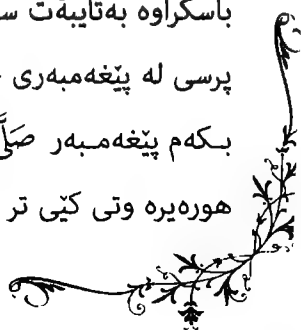 باسکراوە بەتایبەت
پرسی لە پێغەمبەری
بـکەم پێغەمـبەر
هورەیرە وتی کێی تر